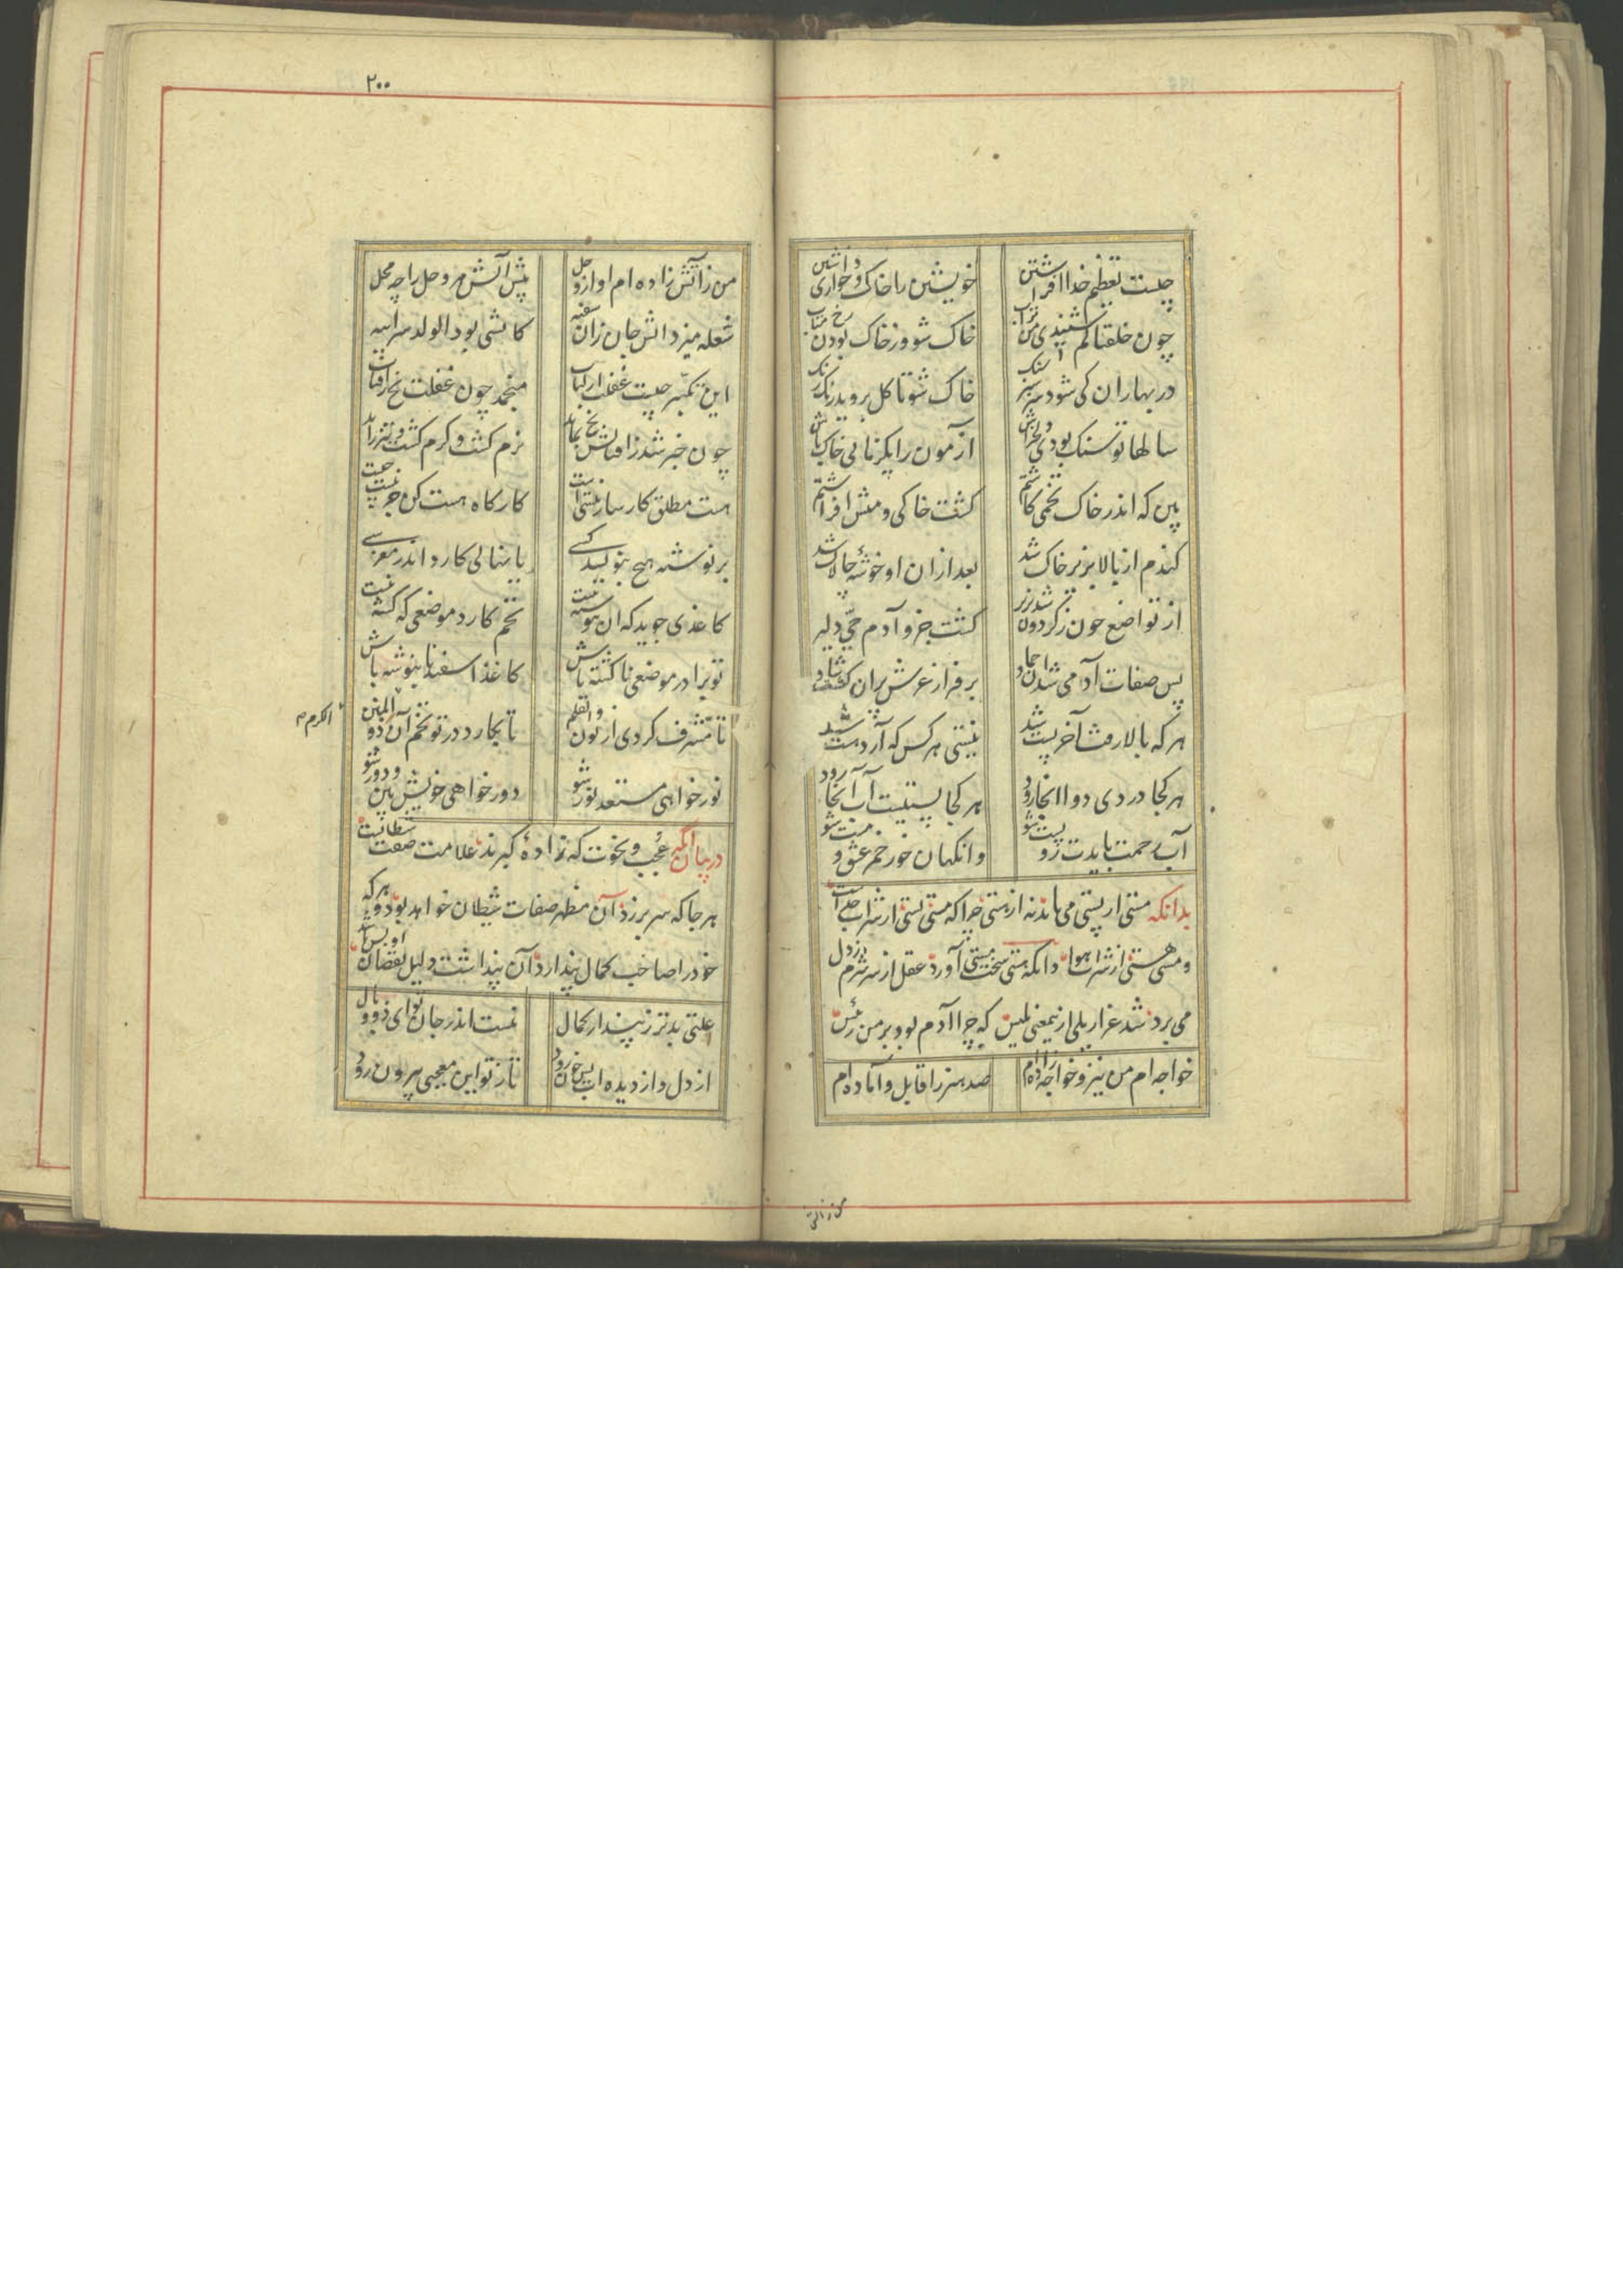 چیست تعظیم خدا افراشتن
خویشتن را خاک و خواری داشتن
چون خلقناکم شنیدی من تراب
خاک شو وز خاک بودن رخ متاب
در بهاران کی شود سرسبز سنک
خاک شو تا کل بروید رنک رنک
سالها تو سنک بودی دلخراش
آزمون را یکزمانی خاک باش
بین که اندر خاک تخمی کاشتم
کشت خاکی و منش افراشتم
کندم از بالا بزیر خاک شد
بعد ازان او خوشهٔ چالاک شد
از تواضع چون ز کردون شد بزیر
کشت جزو آدم حیّ دلیر
پس صفات آدمی شد آن جماد
بر فراز عرش پران کشت شاد
هر که بالا رفت آخر پست شد
نیستی هر کس که آرد هست شد
هر کجا دردی دوا آنجا رود
هر کجا پستیست آب آنجا رود
آب رحمت بایدت رو پست شو
وانکهان خور خمر عشق و مست شو
بدانکه مستی از پستی می‌ماند نه از هستی چرا که مستی پستی از شراب خداست
و مستی هستی از شراب هوا و آنکه هستی سخت مستی آورد عقل از سر شرم از دل
می‌برد شد عزازیلی ازیمعنی بلیس که چرا آدم بود بر من رئیس
خواجه‌ام من نیز و خواجه زاده‌ام
صد هنر را قابل و آماده‌ام
من ز آتش
۲۰۰
من ز آتش زاده‌ام او از وحل
پیش آتش مر وحل را چه محل
شعله میزد آتش جان زان سفیه
کاتشی بود الولد سر ابیه
این تکبّر چیست غفلت از لباب
منجمد چون غفلت یخ ز آفتاب
چون خبر شد ز آفتابش یخ نماند
نرم کشت و کرم کشت و تیز راند
هست مطلق کارساز نیستی است
کارکاه هست کن جز نیست چیست
بر نوشته هیچ بنویسد کسی
یا نهالی کارد اندر مغرسی
کاغذی جوید که آن بنوشته نیست
تخم کارد موضعی که کشته نیست
تو برادر موضعی ناکشته باش
کاغذ اسفید نابنوشته باش
تا مشرف کردی از نون والقلم
تا بکارد در تو تخم آن ذو المنن
الکرم م
نور خواهی مستعد نور شو
دور خواهی خویش بین و دور شو
در بیان آنکه کبر و عجب و نخوت که زادهٔ کبرند علامت صفت شیطانیت
هر جا که سر بر زد آن مظهر صفات شیطان خواهد بود و هر که
خود را صاحب کمال پندارد آن پنداشت دلیل نقصان او بس باشد
علتی بدتر ز پندار کمال
نیست اندر جان تو ای ذو دلال
از دل و از دیده‌ات بس خون رود
تا ز تو این معجبی بیرون رود